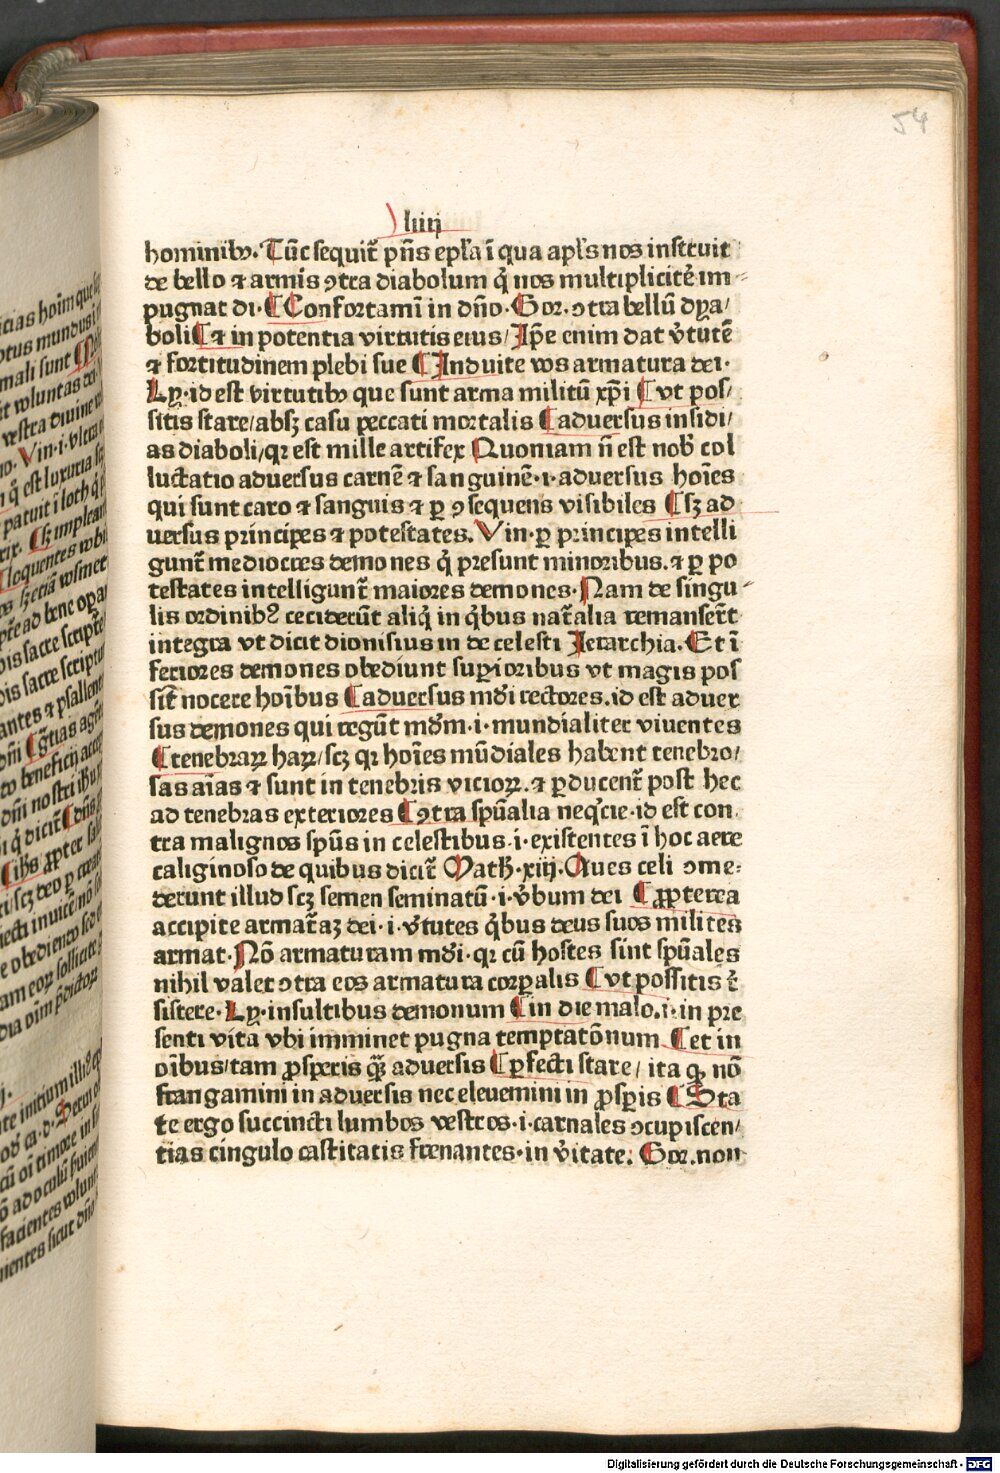 54
liiij
hominibꝰ. Tūc sequit̄ pn̄s epl̄a ī qua apl̄s nos instruit
de bello ⁊ armis ꝯtra diabolum q̇ nos multiplicit̓ im-
pugnat di. ¶ Confortamī in dn̄o. Gor. ꝯtra bellū dya/
boli ¶ ⁊ in potentia virtutis eius/ Ip̄e enim dat v̓tutē
⁊ fortitudinem plebi sue ¶ Induite vos armatura dei.
Ly. id est virtutibꝰ que sunt arma militū xp̄i ¶ vt pos/
sitis stare/ absꝫ casu peccati mortalis ¶ aduersus insidi/
as diaboli/ qꝛ est mille artifex Quoniam n̄ est nob̓ col
luctatio aduersus carnē ⁊ sanguinē. i. aduersus hoīes
qui sunt caro ⁊ sanguis ⁊ ꝑ ꝯsequens visibiles ¶ sꝫ ad
uersus principes ⁊ potestates. Vin. ꝑ principes intelli
gunt̄ mediocres demones q̇ presunt minoribus. ⁊ ꝑ po
testates intelligunt̄ maiores demones. Nam de singu-
lis ordinibꝰ ceciderūt aliq̇ in q̇bus nat̄alia remanser̄t
integra vt dicit dionisius in de celesti Ierarchia. Et ī
feriores demones obediunt suꝑioribus vt magis pos
sīt nocere hoībus ¶ aduersus mūdi rectores. id est aduer
sus demones qui regūt mūdm. i. mundialiter viuentes
¶ tenebraꝝ haꝝ/ scꝫ qꝛ hoīes mūdiales habent tenebro/
sas aīas ⁊ sunt in tenebris vicioꝝ. ⁊ ꝑducent̄ post hec
ad tenebras exteriores ¶ ꝯtra spūalia neq̇cie. id est con
tra malignos spūs in celestibus. i. existentes ī hoc aere
caliginoso de quibus dicit̄ Math. xiij. Aues celi ꝯme-
derunt illud scꝫ semen seminatū. i. v̓bum dei ¶ ꝓpterea
accipite armat̄aꝫ dei. i. v̓tutes q̇bus deus suos milites
armat. Nō armaturam mūdi. qꝛ cū hostes sint spūales
nihil valet ꝯtra eos armatura corꝑalis ¶ vt possitis r̓
sistere. Ly. insultibus demonum ¶ in die malo. i. in pre
senti vita vbi imminet pugna temptatōnum ¶ et in
oībus/ tam ꝓsperis q̄ꝫ aduersis ¶ ꝑfecti stare/ ita ꝙ nō
frangamini in aduersis nec eleuemini in ꝓsꝑis ¶ Sta
te ergo succincti lumbos vestros. i. carnales ꝯcupiscen/
tias cingulo castitatis frenantes. in v̓itate. Gor. non
Digitalisierung gefördert durch die Deutsche Forschungsgemeinschaft - DFG